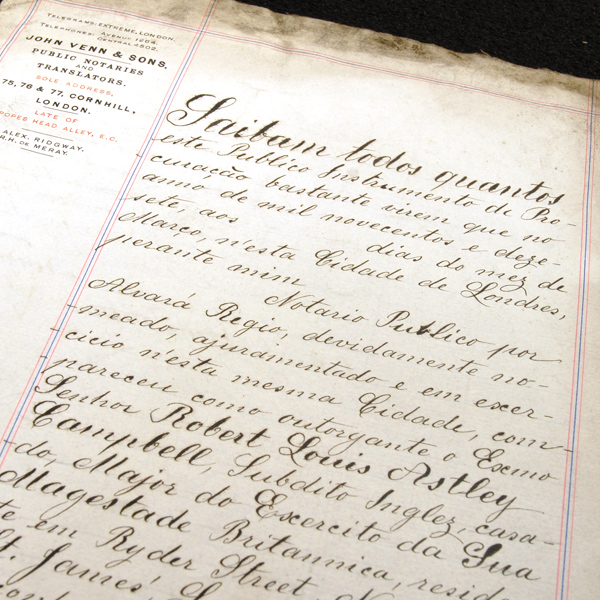 TELEGRAMS: EXTREME, LONDON.
TELEPHONES: AVENUE 1294.
CENTRAL 4502.
JOHN VENN & SONS,
PUBLIC NOTARIES
AND
TRANSLATORS.
SOLE ADDRESS,
75, 76 & 77, CORNHILL,
LONDON.
LATE OF
POPES HEAD ALLEY, E.C.
ALEX. RIDGWAY.
R.H. DE MERAY.
Saibam todos quantos
este Publico Instrumento de Pro-
curação bastante virem que no
anno de mil novecentos e deze-
sete, aos dias do mez de
Março, n'esta Cidade de Londres,
perante mim
Notario Publico por
Alvará Regio, devidamente no-
meado, ajuramentado e em exer-
cicio n'esta mesma Cidade, com-
pareceu como outorgante o Exmo
Senhor Robert Louis Astley
Campbell, Subdito Inglez, casa-
do, Major do Exercito da Sua
Magestade Britannica, reside
te em Ryder Street,
St. James,